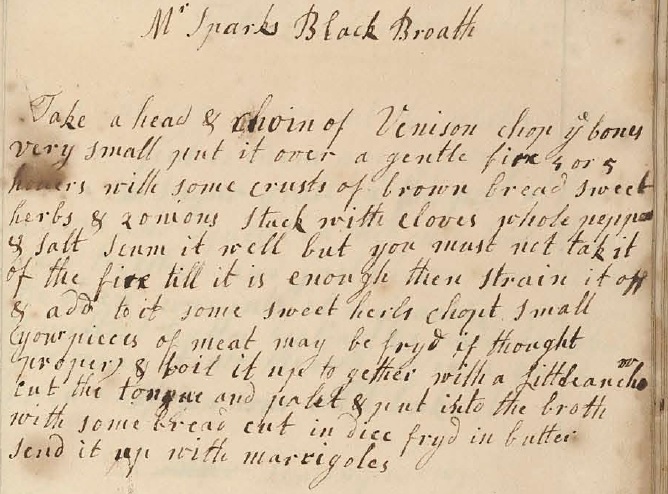 Mr Sparks Black Broath
Take a head & choin of Venison chop ye bones
very small put it over a gentle fire 4 or 5
howers with some crusts of brown bread sweet
herbs & 2 onions stuck with cloves whole pepper
& salt scum it well but you must not tak it
of the fire till it is enough then strain it off
& add to it some sweet herbs chopt small
(your pieces of meat may be fryd if thought
proper) & boil it up to gether with a little
cut the tongue and palet & put into the broth
with some bread cut in dice fryd in butter
send it up with marrigoles